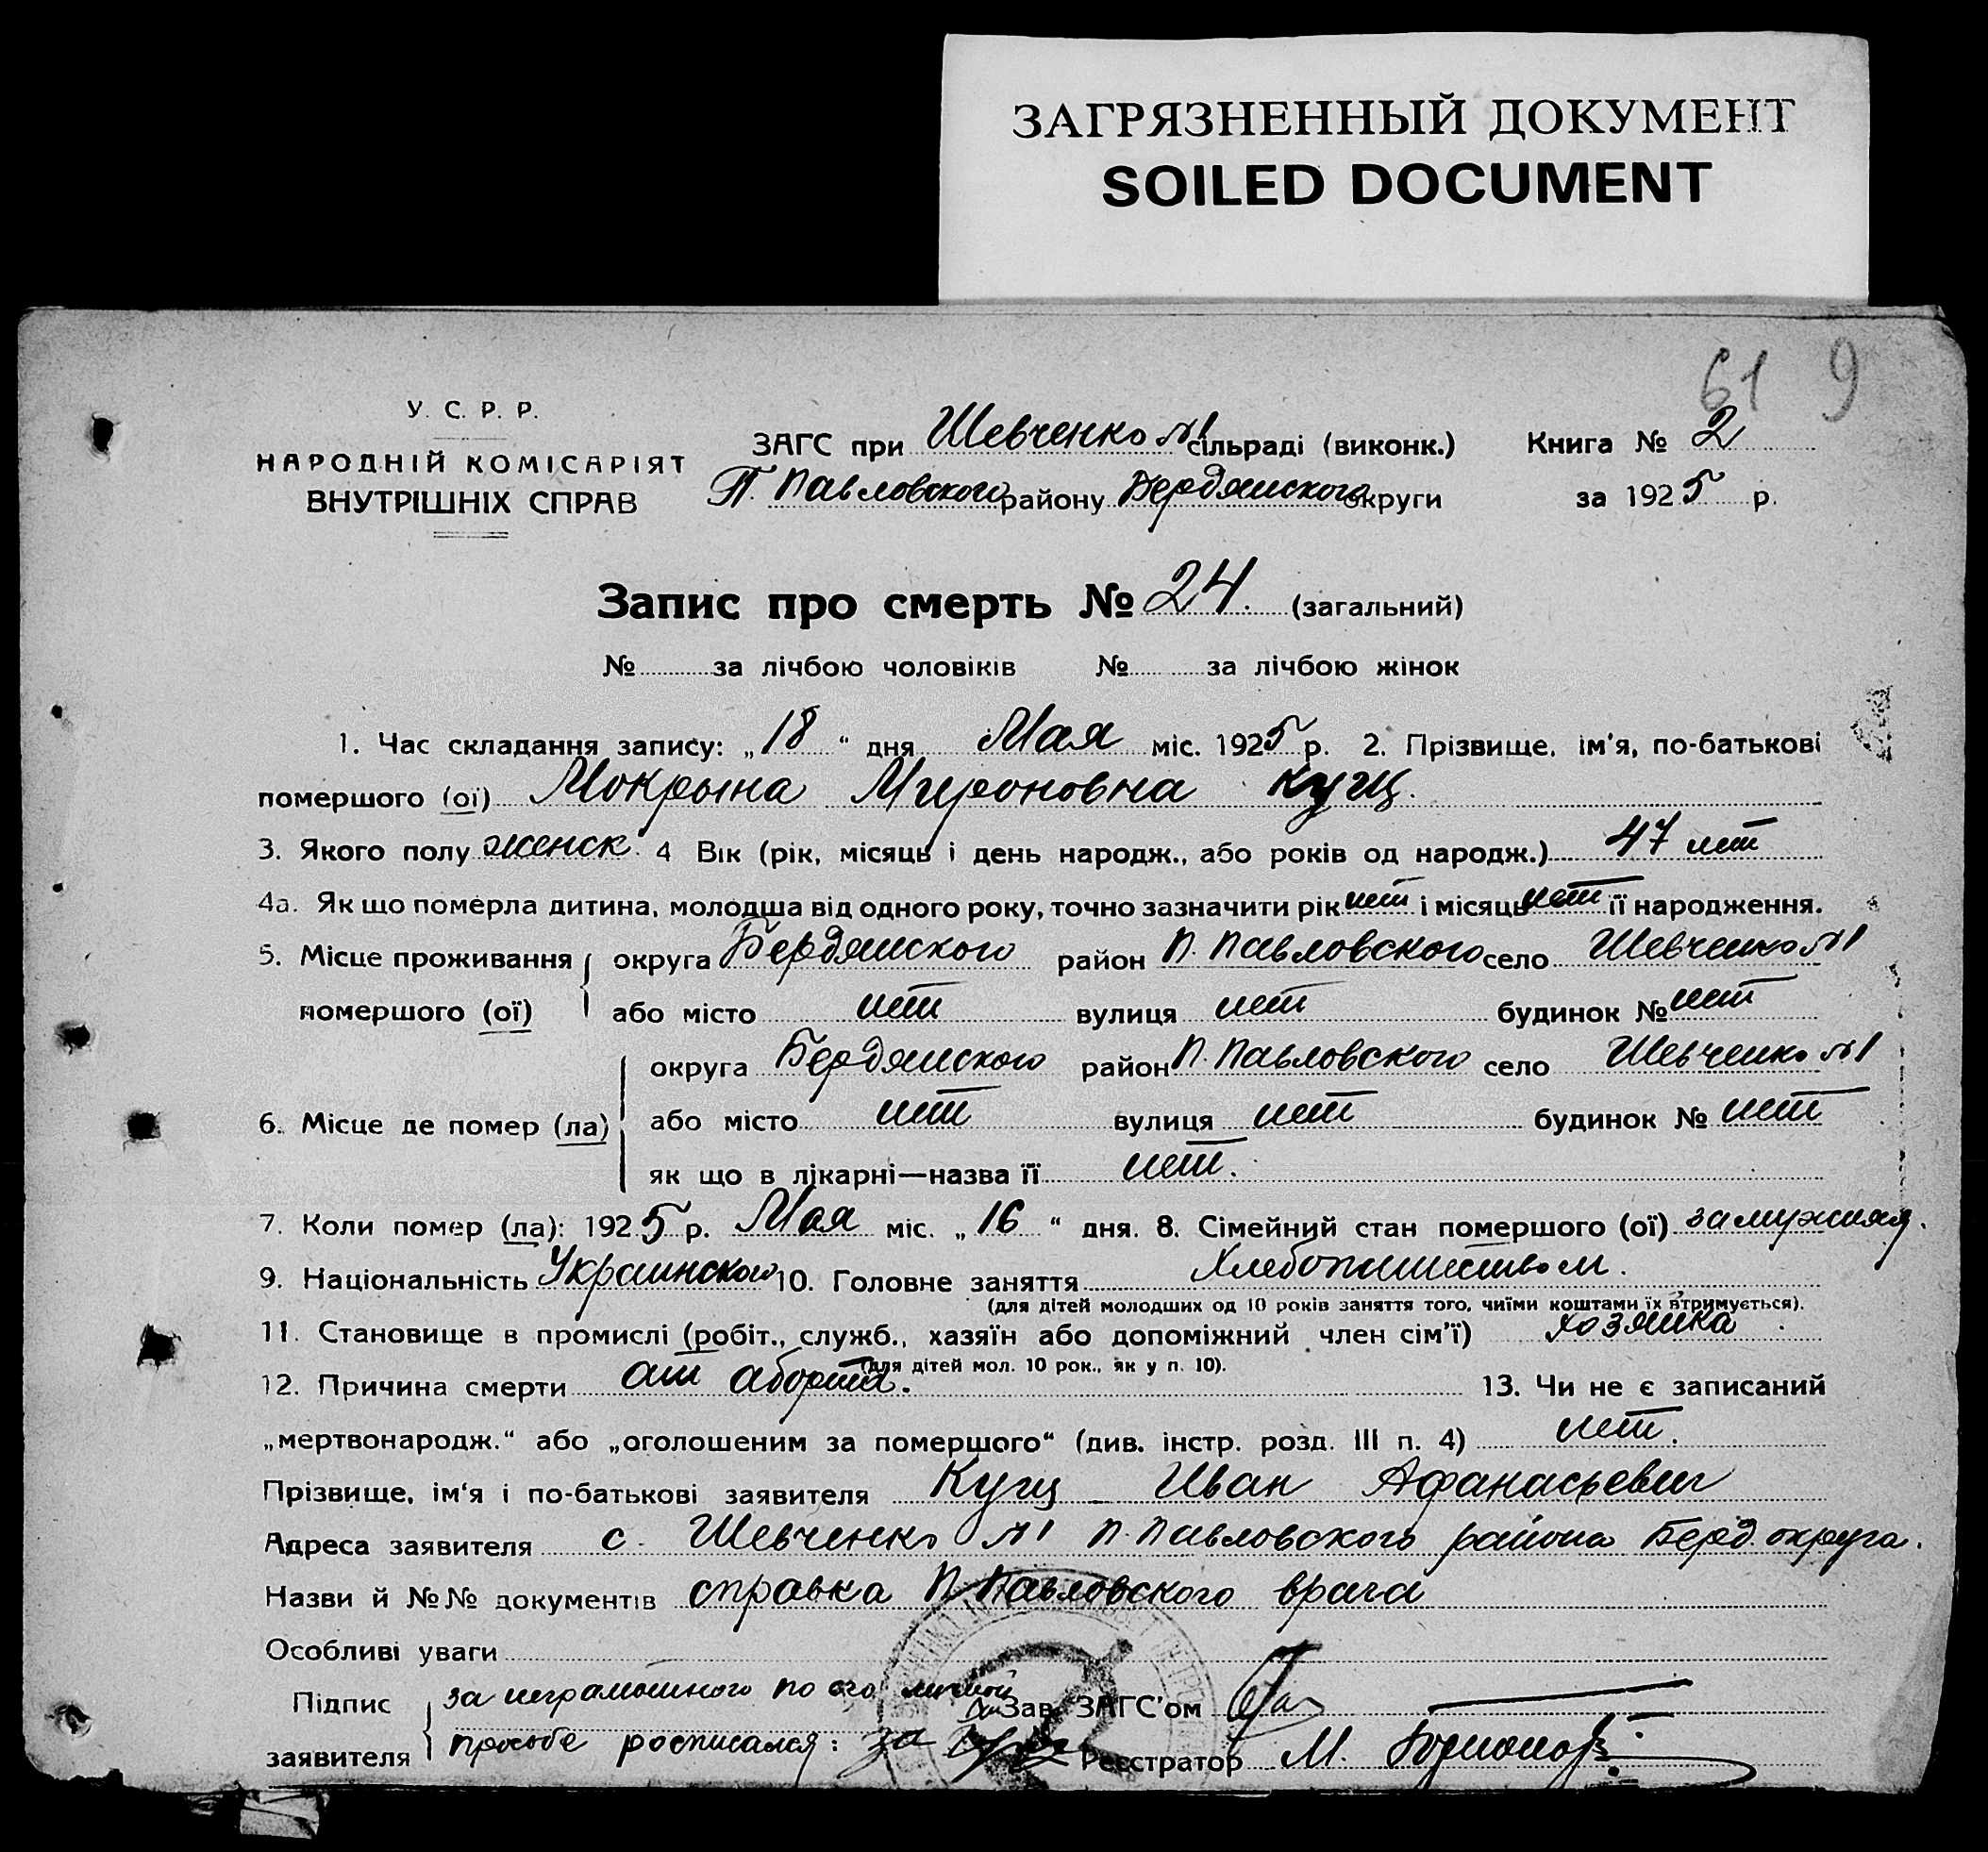 ЗАГРЯЗНЕННЫЙ ДОКУМЕНТ
SOILED DOCUMENT
61 9
У. С. Р. Р.
НАРОДНІЙ КОМІСАРІЯТ
ВНУТРІШНІХ СПРАВ
ЗАГС при Шевченко №1 сільраді (виконк.) Книга № 2
П. Павловского району Бердянского округи за 1925 р.
Запис про смерть № 24. (загальний)
№ за лічбою чоловіків № за лічбою жінок
1. Час складання запису: „18“ дня Мая міс. 1925 р. 2. Прізвище, ім'я, по-батькові
помершого (ої) Мокрына Мироновна Кущ.
3. Якого полу женск. 4 Вік (рік, місяць і день народж., або років од народж.) 47 лет
4а. Як що померла дитина, молодша від одного року, точно зазначити рік нет і місяць нет її народження.
5. Місце проживання округа Бердянского район П. Павловского село Шевченко №1
помершого (ої) або місто нет вулиця нет будинок № нет
округа Бердянского район П. Павловского село Шевченко №1
6. Місце де помер (ла) або місто нет вулиця нет будинок № нет
як що в лікарні—назва її нет.
7. Коли помер (ла): 1925 р. Мая міс. „16“ дня. 8. Сімейний стан помершого (ої) замужняя.
9. Національність Украинского 10. Головне заняття Хлебопашеством.
(для дітей молодших од 10 років заняття того, чиїми коштами їх втримується).
11. Становище в промислі (робіт., служб., хазяїн або допоміжний член сім'ї) хозяйка
(для дітей мол. 10 рок., як у п. 10).
12. Причина смерти от аборта. 13. Чи не є записаний
„мертвонародж.“ або „оголошеним за помершого“ (див. інстр. розд. III п. 4) нет.
Прізвище, ім'я і по-батькові заявителя Кущ Иван Афанасьевич
Адреса заявителя с. Шевченко №1 П. Павловского района Берд. округа.
Назви й №№ документів справка П. Павловского врача
Особливі уваги
Підпис за неграмотного по его личной Зав. ЗАГС'ом
заявителя прозбе росписался: за Реєстратор М.